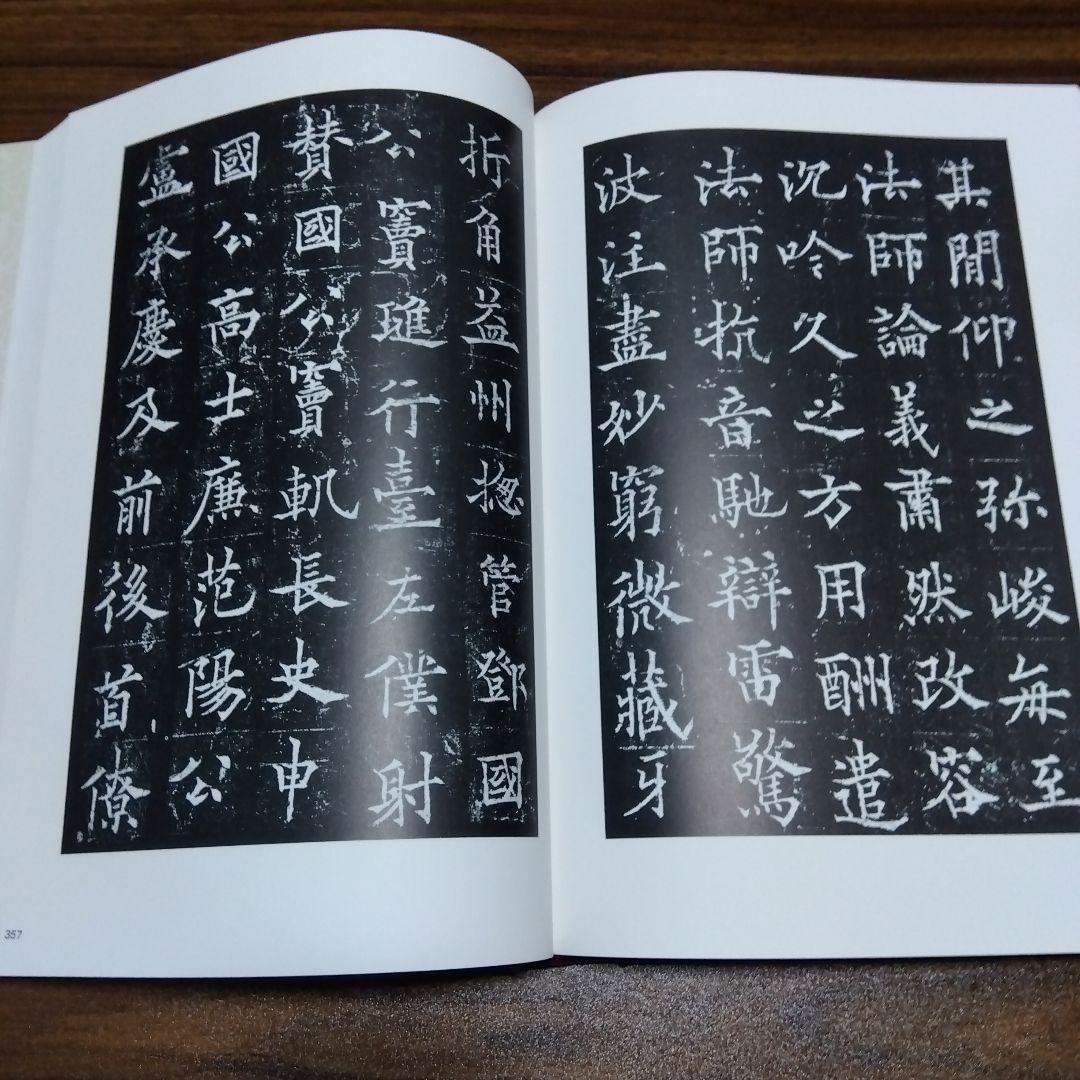 其間仰之弥峻每至
法師論義肅然改容
沉吟久之方用酬遣
法師抗音馳辯雷驚
波注盡妙窮微藏牙
折角益州揔管鄧國
公竇璡行臺左僕射
贊國公竇軌長史申
國公高士廉范陽公
盧承慶及前後首僚
357